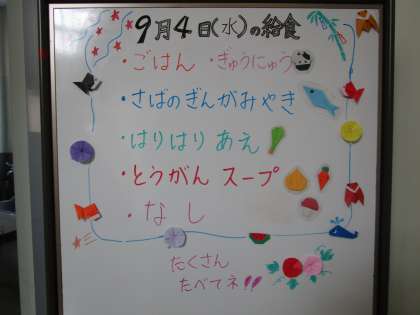 9月4日(水)の給食
・ごはん ・ぎゅうにゅう
・さばのぎんがみやき
・はりはりあえ
・とうがんスープ
・なし
たくさん
たべてネ!!